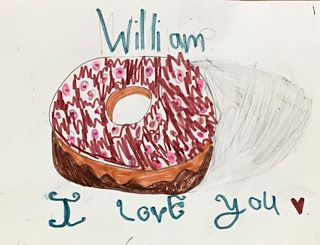 William
I love you